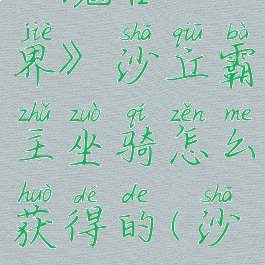 jiè shā qiū bà
界》 沙丘霸
zhǔ zuò qí zěn me
主坐骑怎么
huò dé de shā
获得的(沙